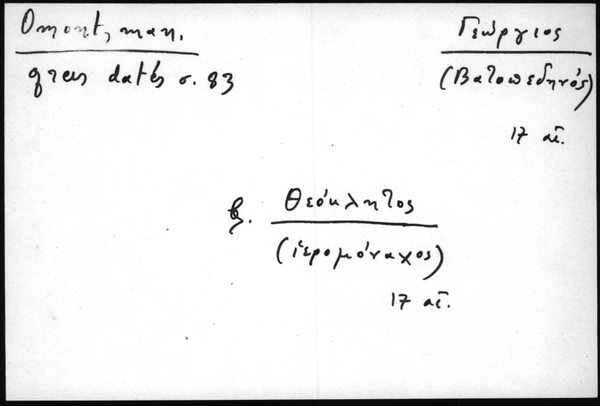 Omont, man.
grecs datés σ. 83
Γεώργιος
(Βατοπεδηνός)
17 αἰ.
β. Θεόκλητος
(ἱερομόναχος)
17 αἰ.